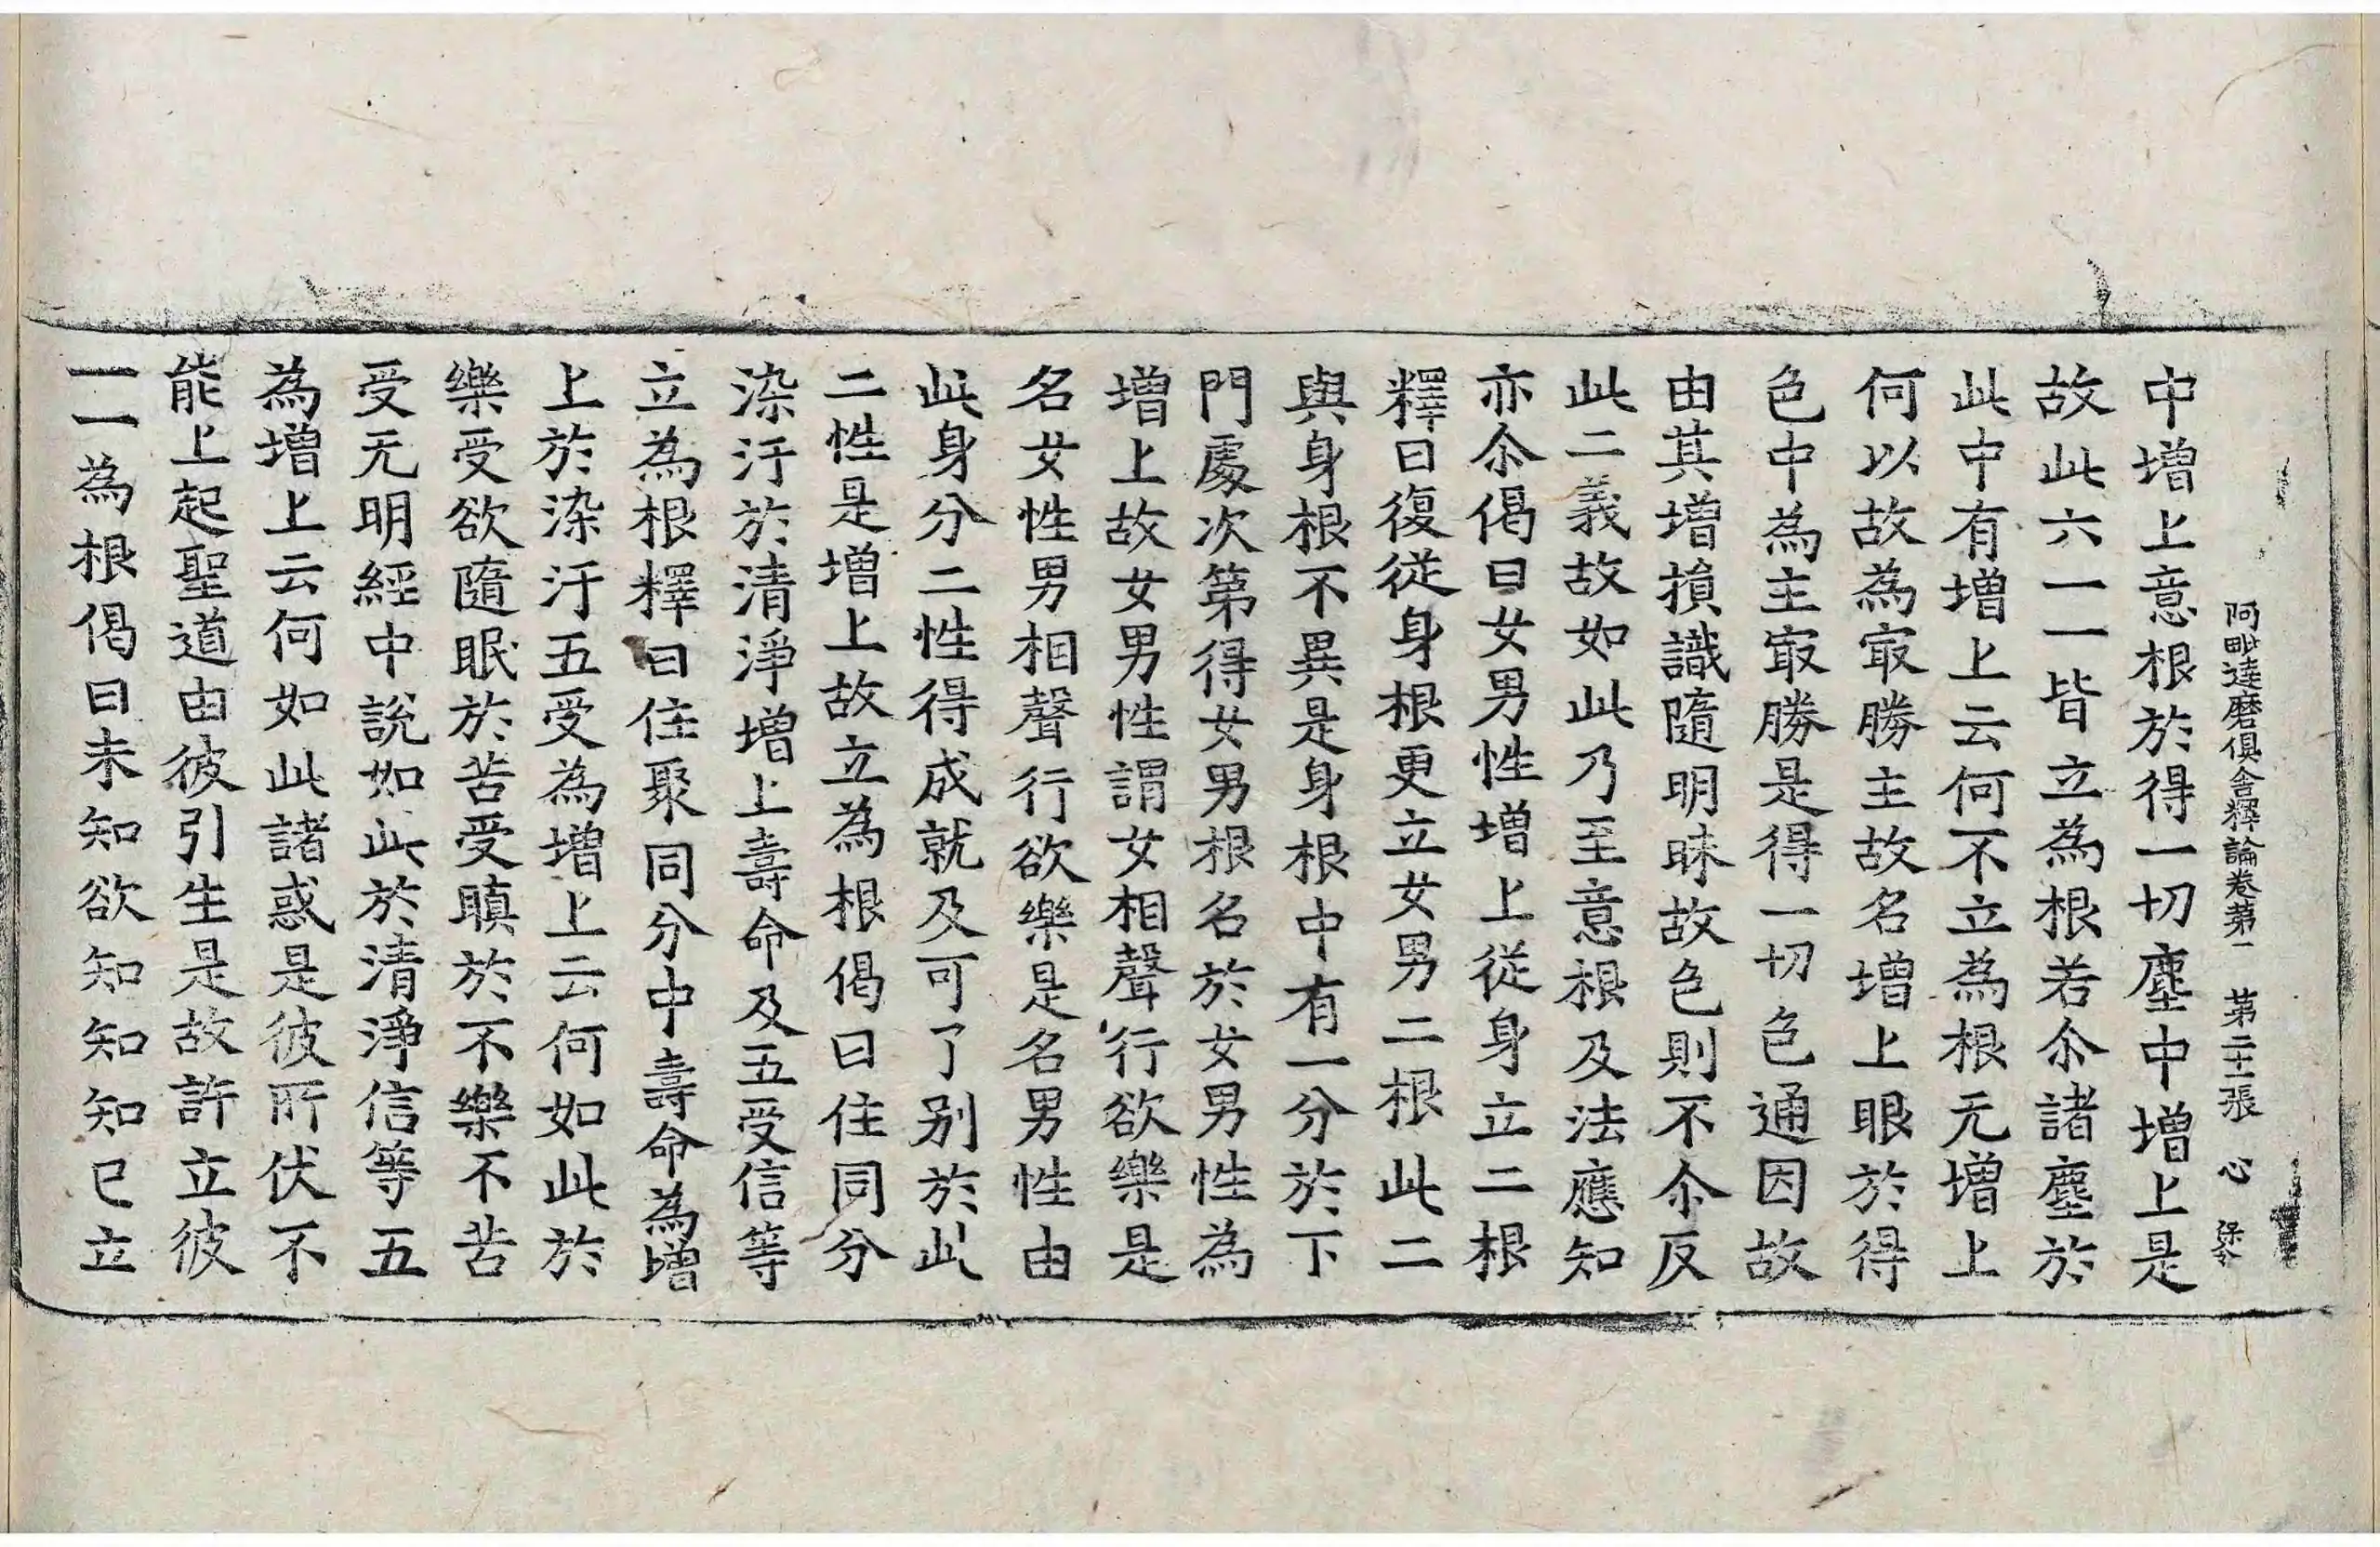 阿毗達磨俱舍釋論卷第二　第二十一張　心
中增上意根於得一切塵中增上是
故此六一一皆立為根若尒諸塵於
此中有增上云何不立為根无增上
何以故為㝡勝主故名增上眼於得
色中為主㝡勝是得一切色通因故
由其增損識隨明昧故色則不尒反
此二義故如此乃至意根及法應知
亦尒偈曰女男性增上從身立二根
釋曰復從身根更立女男二根此二
與身根不異是身根中有一分於下
門處次第得女男根名於女男性為
增上故女男性謂女相聲行欲樂是
名女性男相聲行欲樂是名男性由
此身分二性得成就及可了別於此
二性是增上故立為根偈曰住同分
染汙於清淨增上壽命及五受信等
立為根釋曰住聚同分中壽命為增
上於染汙五受為增上云何如此於
樂受欲隨眠於苦受瞋於不樂不苦
受无明經中說如此於清淨信等五
為增上云何如此諸惑是彼所伏不
能上起聖道由彼引生是故許立彼
一一為根偈曰未知欲知知知已立